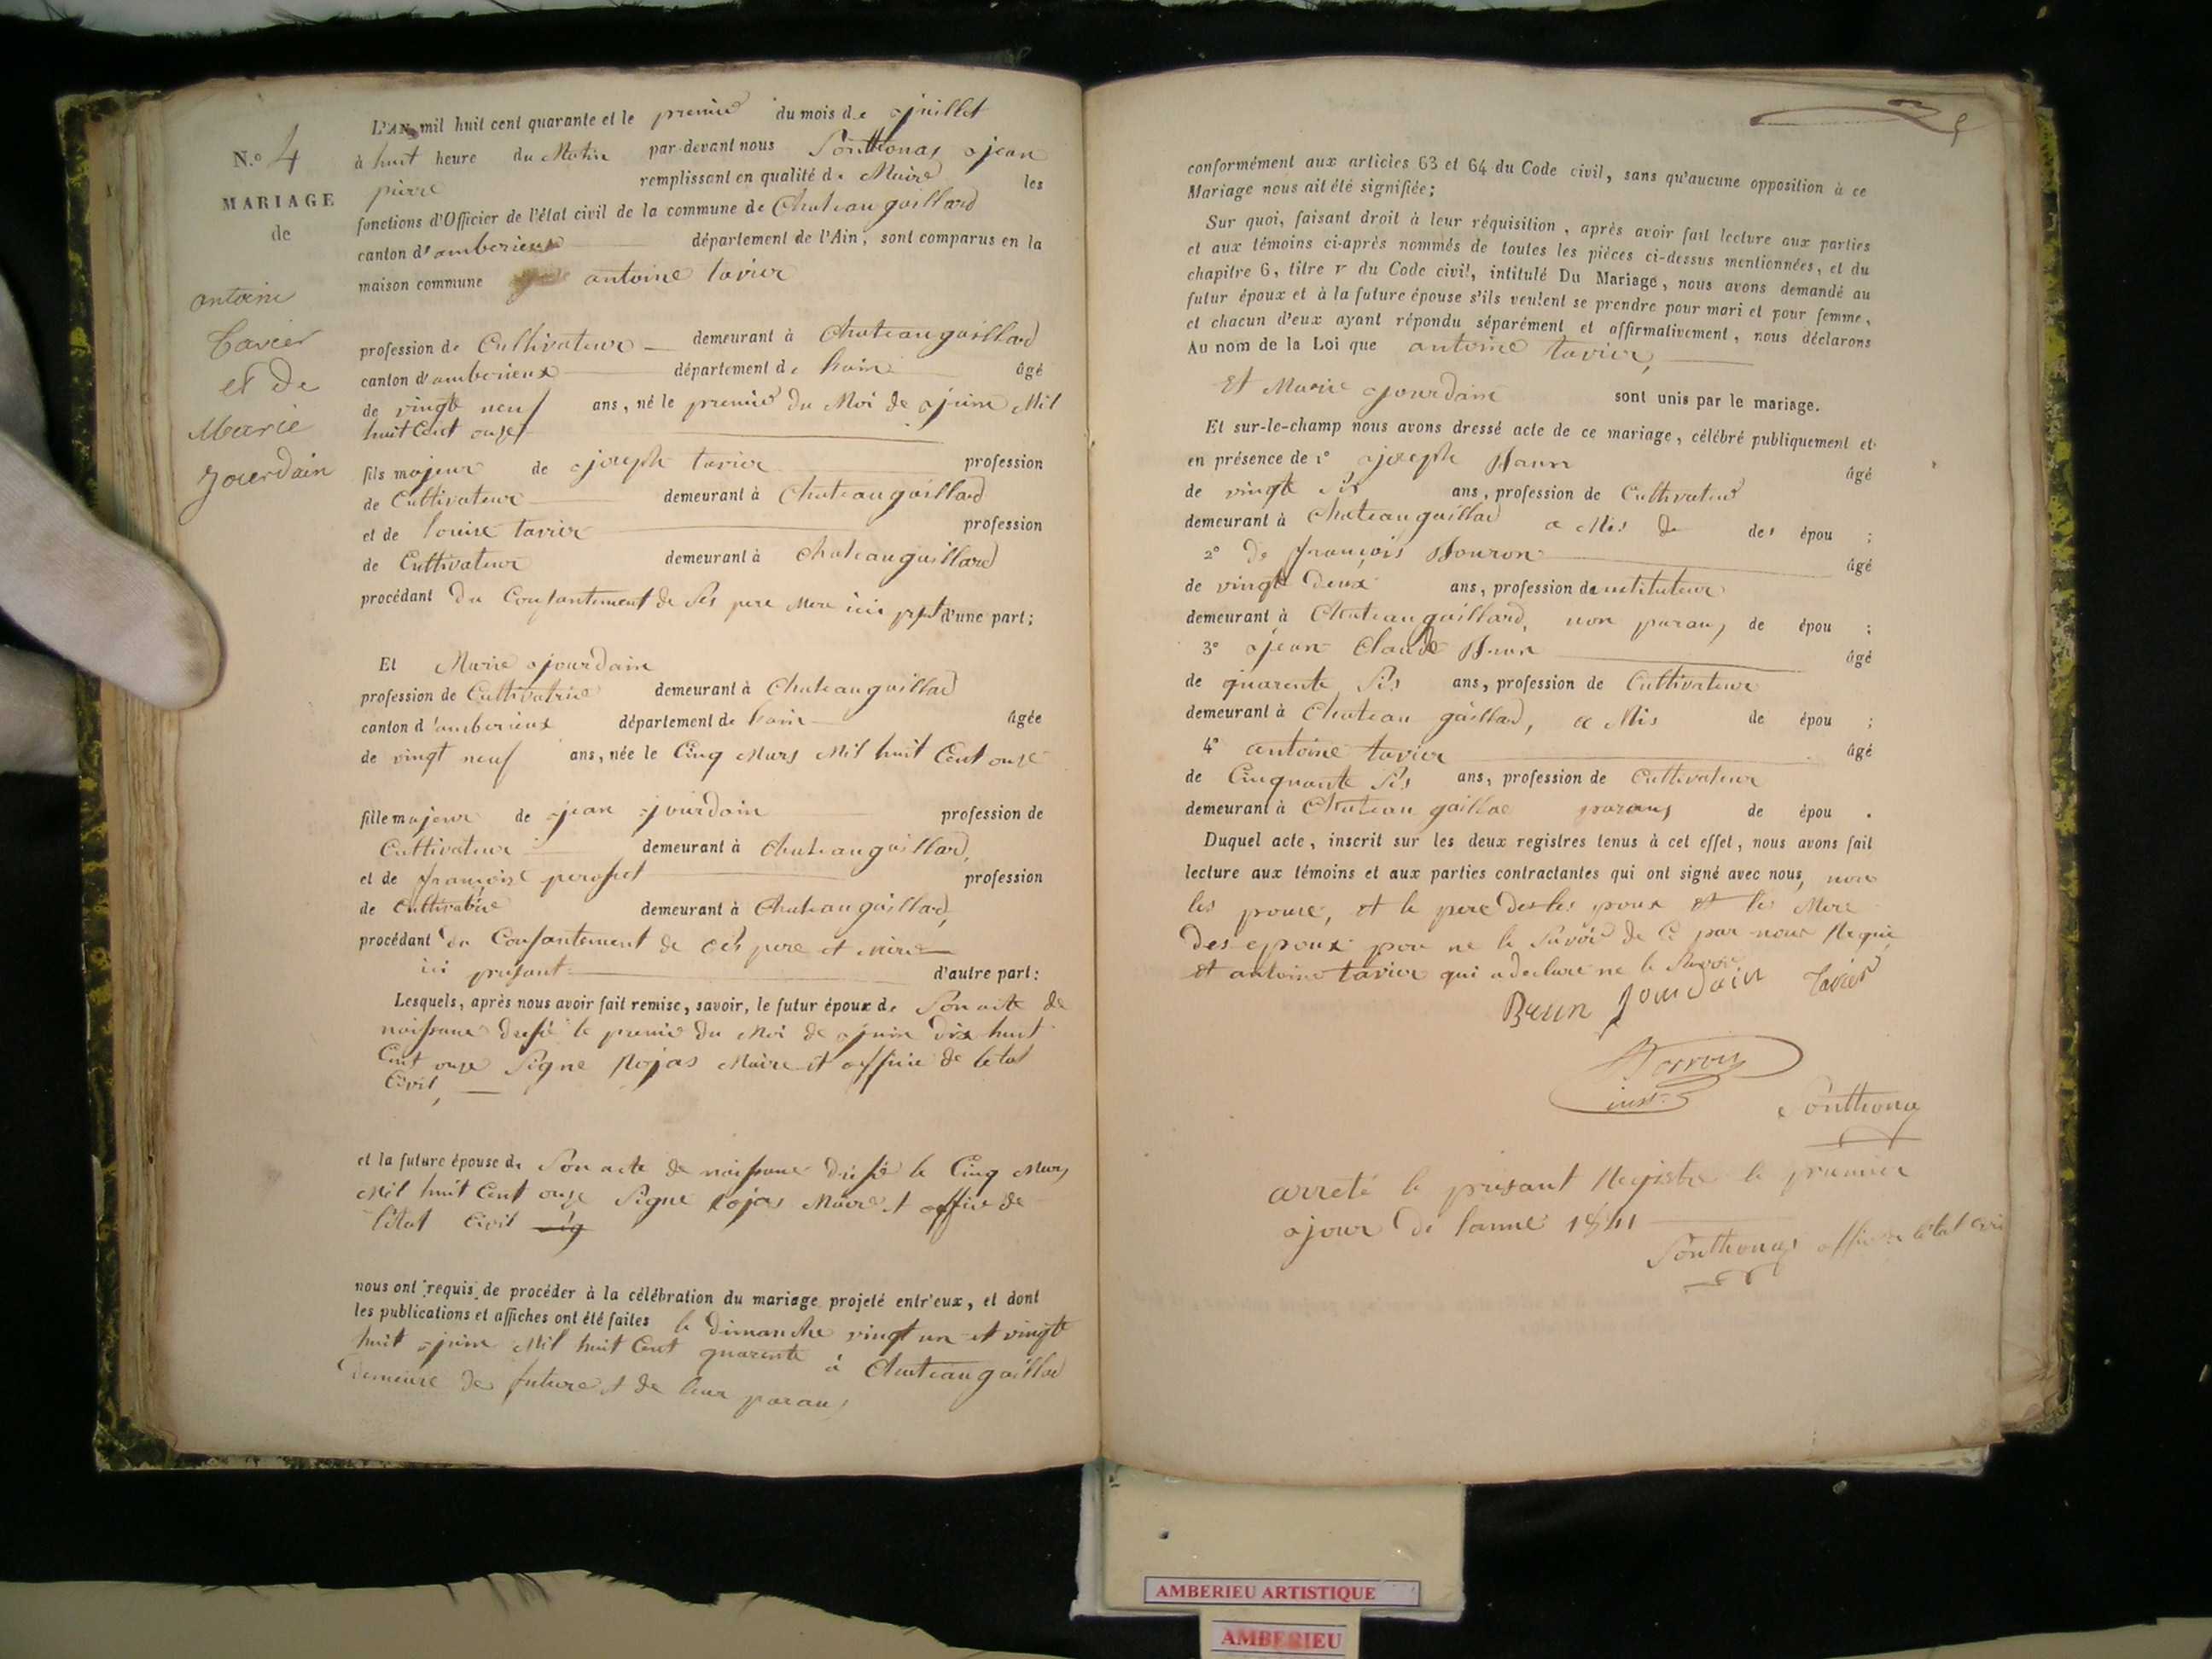 N.º 4
MARIAGE
de
antoine
tavier
et de
Marie
Jourdain
L'AN mil huit cent quarante et le premier du mois de juillet
à huit heure du Matin par-devant nous Ponthonas jean
pierre remplissant en qualité de Maire les
fonctions d'Officier de l'état civil de la commune de Chateaugaillard
canton d'amberieux département de l'Ain, sont comparus en la
maison commune antoine tavier
profession de Cultivateur demeurant à Chateaugaillard
canton d'amberieux département de lain âgé
de vingte neuf ans, né le premier du Moi de juin Mil
huit Cent onze
fils majeur de joseph tavier profession
de Cultivateur demeurant à Chateaugaillard
et de louise tavier profession
de Cultivateur demeurant à Chateaugaillard
procédant du Consantement de ses pere Mere ici d'une part;
Et Marie jourdain
profession de Cultivatrice demeurant à Chateaugaillad
canton d'amberieux département de lain âgée
de vingt neuf ans, née le Cinq Mars Mil huit Cent onze
fille majeur de jean jourdain profession de
Cultivateur demeurant à Chateaugaillard,
et de françoise profession
de Cultivatrice demeurant à Chateaugaillard,
procédant du Consantement de ces pere et mere
ici présant d'autre part:
Lesquels, après nous avoir fait remise, savoir, le futur époux de Son acte de
naissance dressé le premier du Moi de juin dix huit
Cent onze Signe Rojas Maire et officie de letat
Civil,
et la future épouse de Son acte de naissance dressé le Cinq Mars
Mil huit Cent onze Signe Rojas Maire et officie de
l'état Civil sig
nous ont requis de procéder à la célébration du mariage projeté entr'eux, et dont
les publications et affiches ont été faites le dimanche vingt un et vingte
huit juin Mil huit Cent quarente à Chateaugaillad
demeure des future et de leur parans
conformément aux articles 63 et 64 du Code civil, sans qu'aucune opposition à ce
Mariage nous ait été signifiée;
Sur quoi, faisant droit à leur réquisition, après avoir fait lecture aux parties
et aux témoins ci-après nommés de toutes les pièces ci-dessus mentionnées, et du
chapitre 6, titre v du Code civil, intitulé Du Mariage, nous avons demandé au
futur époux et à la future épouse s'ils veulent se prendre pour mari et pour femme,
et chacun d'eux ayant répondu séparément et affirmativement, nous déclarons
Au nom de la Loi que antoine tavier,
Et Marie jourdain sont unis par le mariage.
Et sur-le-champ nous avons dressé acte de ce mariage, célébré publiquement et
en présence de 1º joseph Brun âgé
de vingte sis ans, profession de Cultivateur
demeurant à Chateaugaillad a Mis de des épou ;
2º de françois âgé
de vingte deux ans, profession de instituteur
demeurant à Chateaugaillard, non parans de épou ;
3º jean Claude Brun âgé
de quarente Sis ans, profession de Cultivateur
demeurant à Chateau gaillard, a Mis de épou ;
4º antoine tavier âgé
de Cinquante Sis ans, profession de Cultivateur
demeurant à Chateau gaillad parans de épou .
Duquel acte, inscrit sur les deux registres tenus à cet effet, nous avons fait
lecture aux témoins et aux parties contractantes qui ont signé avec nous, non
les et le pere des les et les Mere
des epoux pou ne le Savoir de ce par nous Requie
et antoine tavier qui a declaré ne le Savoir
Brun Jourdain tavier
inst.
Ponthonas
arreté le présant Registre le premier
jour de lanné 1841
Ponthonas officier létat civi
AMBERIEU ARTISTIQUE
AMBERIEU